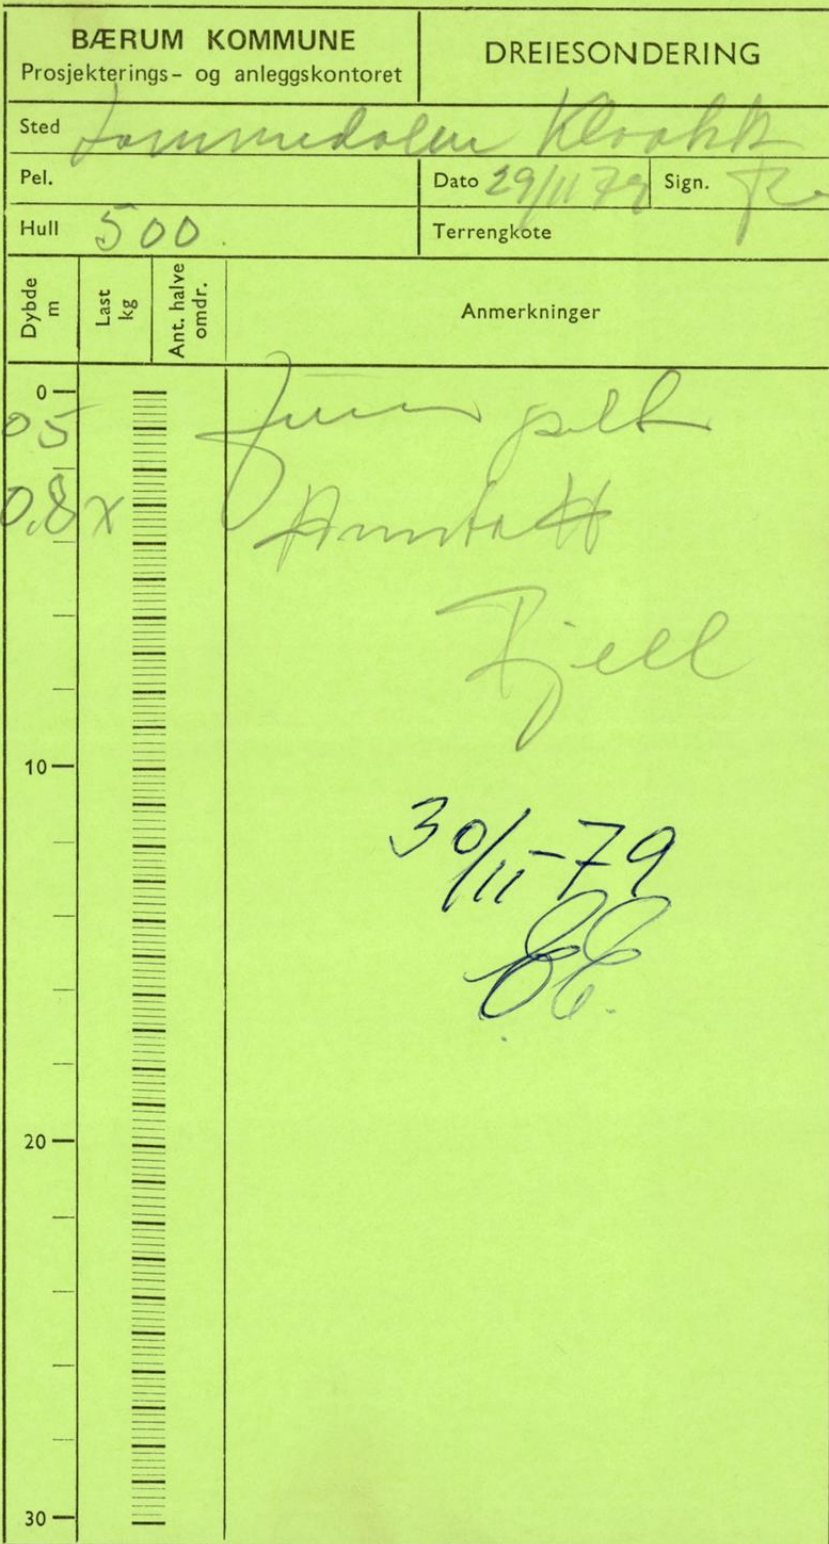 BÆRUM KOMMUNE
Prosjekterings- og anleggskontoret
DREIESONDERING
Sted Lommedalen Kloakk
Pel.
Dato 29/11 79
Sign.
Hull 500.
Terrengkote
Dybde m
Last kg
Ant. halve omdr.
Anmerkninger
0
05
0,8 x
Antatt
Fjell
10
30/11-79
20
30